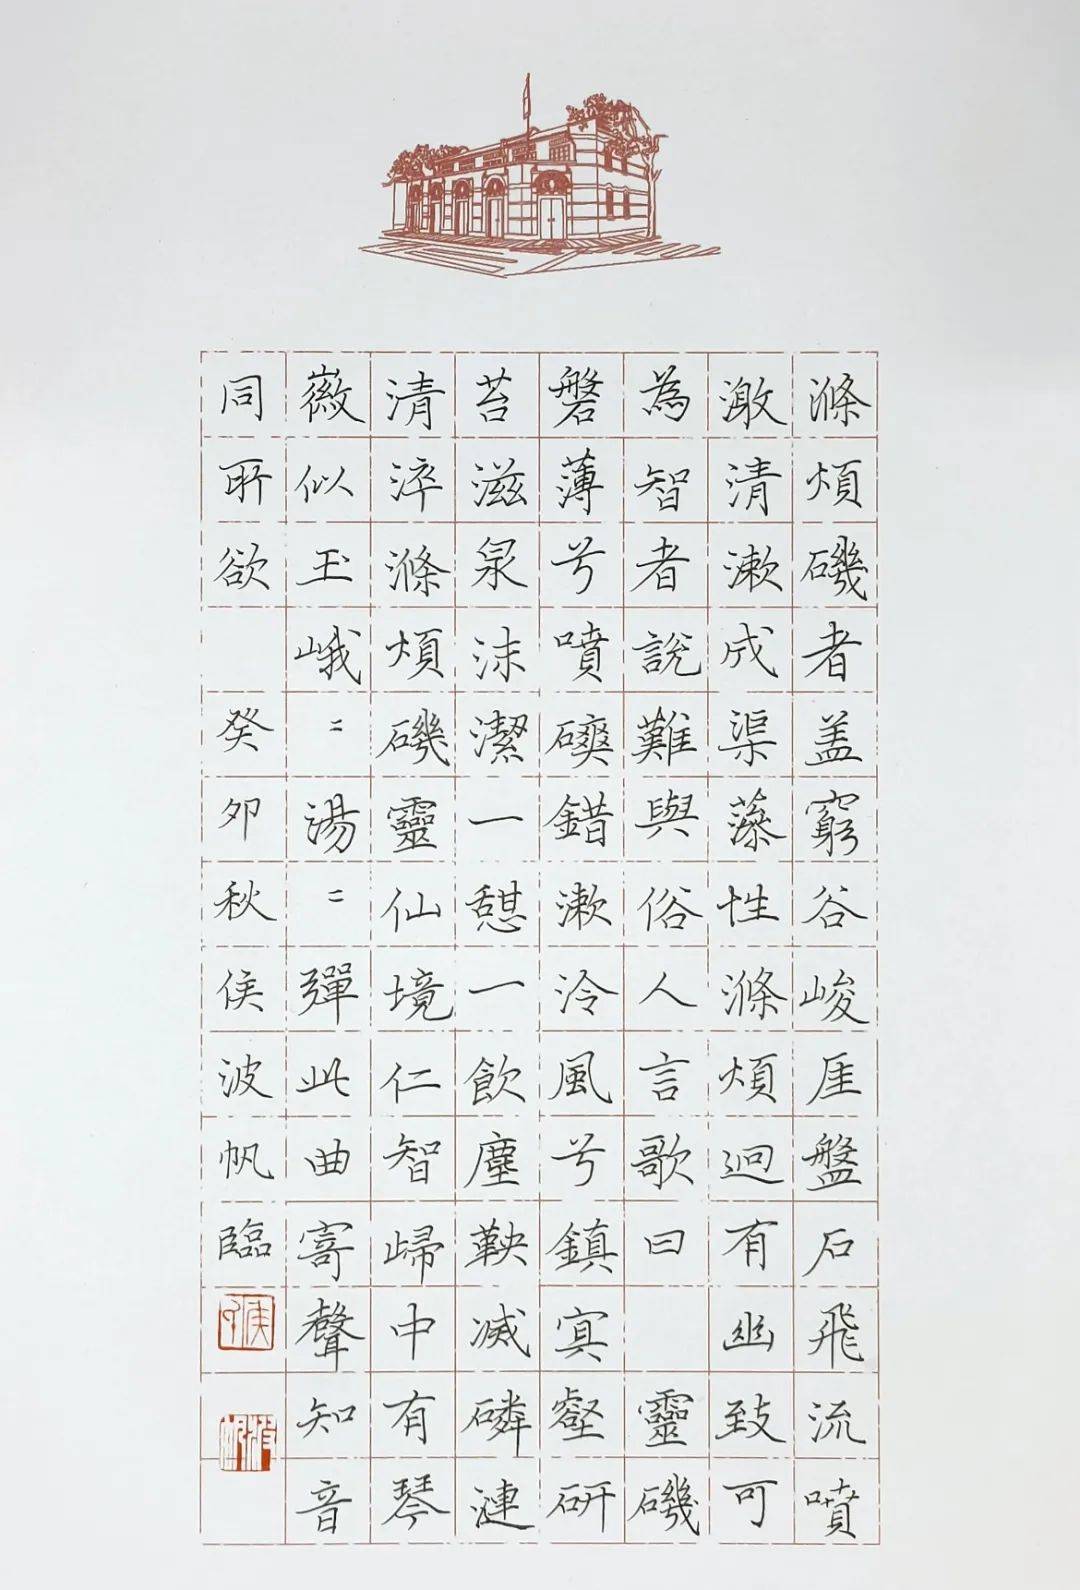 滌煩磯者盖窮谷峻厓盤石飛流噴
激清漱成渠藻性滌煩迥有幽致可
為智者說難與俗人言歌曰　靈磯
磐薄兮噴磢錯漱泠風兮鎮冥壑研
苔滋泉沫潔一憩一飲塵鞅减磷漣
清淬滌煩磯靈仙境仁智歸中有琴
徽似玉峨〻湯〻彈此曲寄聲知音
同所欲　癸卯秋侯波帆臨